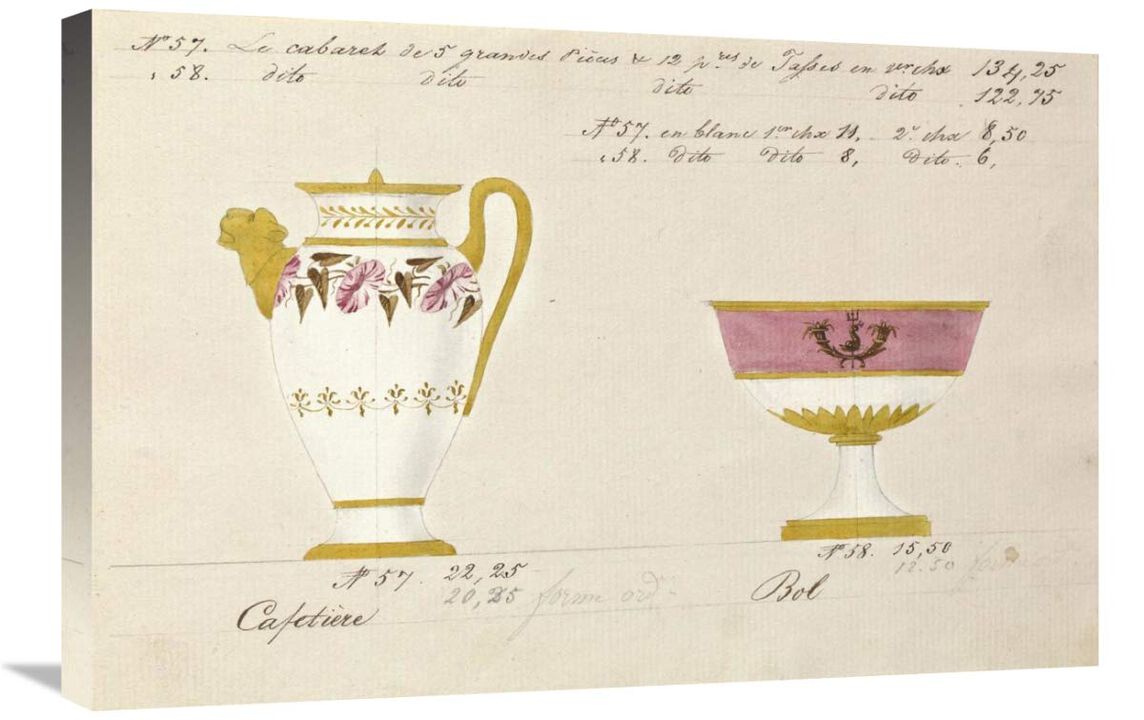 N° 57. Le cabaret de 5 grandes Pièces & 12 p.res de Tasses en 1er chx 134,25
" 58. dito dito dito dito 122,75
N° 57. en blanc 1er chx 11, 2e chx 8,50
" 58. dito dito 8, dito 6,
N° 57. 22,25
20,25 forme ord
Cafetière
N° 58. 15,50
12.50 form
Bol